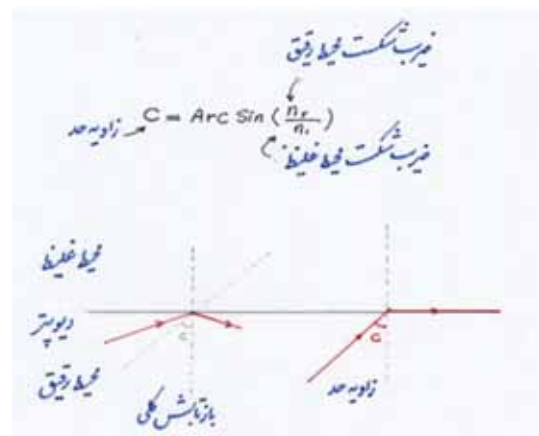 ضریب شکست محیط رقیق
زاویه حد C = Arc Sin (n₂/n₁)
ضریب شکست محیط غلیظ
محیط غلیظ
دیوپتر
محیط رقیق
C
بازتابش کلی
C
زاویه حد